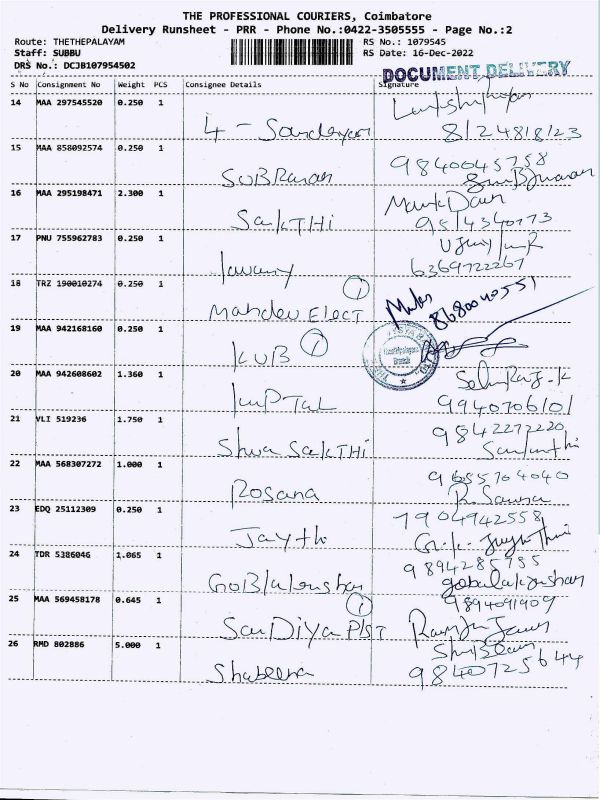 THE PROFESSIONAL COURIERS, Coimbatore
Delivery Runsheet - PRR - Phone No.:0422-3505555 - Page No.:2
Route: THETHEPALAYAM RS No.: 1079545
Staff: SUBBU RS Date: 16-Dec-2022
DRS No.: DCJB107954502
DOCUMENT DELIVERY
S No Consignment No Weight PCS Consignee Details Signature
14 MAA 297545520 0.250 1
8124818123
15 MAA 858092574 0.250 1
9840045758
SUBRaman
16 MAA 295198471 2.300 1
SakTHi
9514340773
17 PNU 755962783 0.250 1
6369722267
18 TRZ 190010274 0.250 1
1
Mahdev Elect
8680040551
19 MAA 942168160 0.250 1
KVB 1
20 MAA 942608602 1.360 1
9940706101
21 VLI 519236 1.750 1
9842272220
Shva SakTHi
22 MAA 568307272 1.000 1
9655764040
Rosana
23 EDQ 25112309 0.250 1
7904942558
Jaythi
24 TDR 5386046 1.065 1
9894285735
25 MAA 569458178 0.645 1
1 9894091909
SanDiya PlST
26 RMD 802886 5.000 1
Shabeena
9840725644